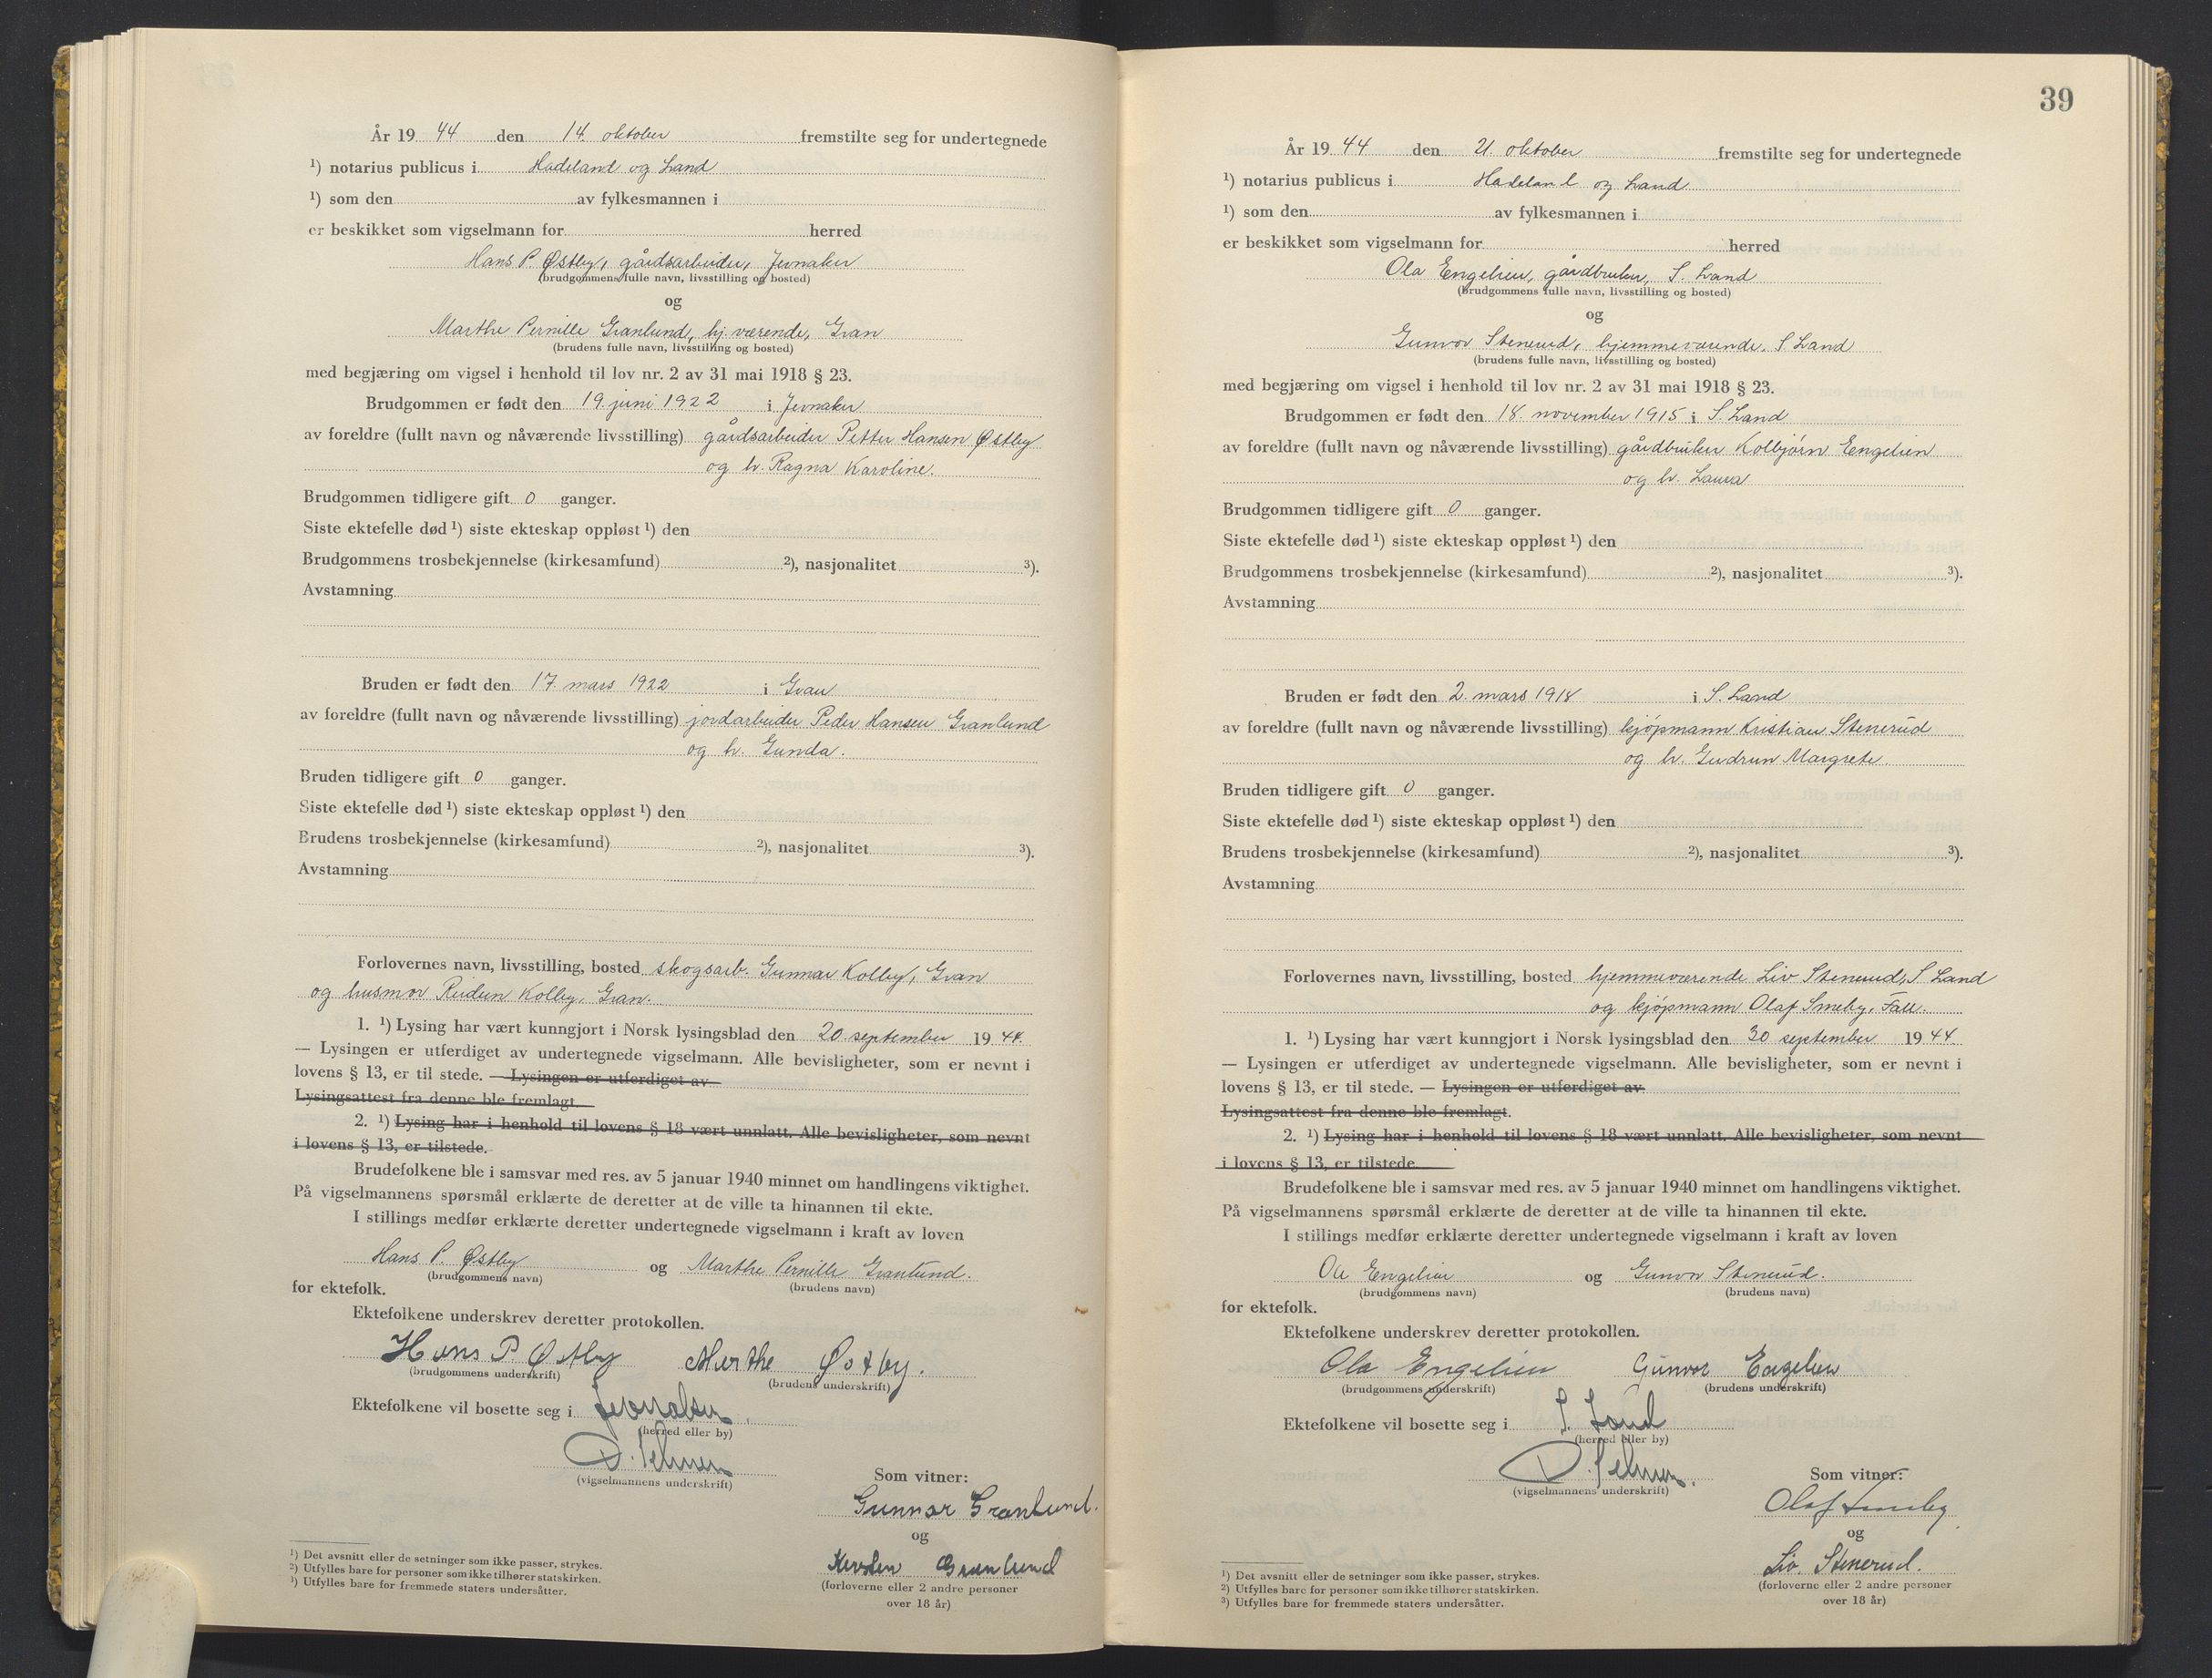 År 19 44 den 14. oktober fremstilte seg for undertegnede
¹) notarius publicus i Hadeland og Land
¹) som den av fylkesmannen i
er beskikket som vigselmann for herred
Hans P. Østby, gårdsarbeider, Jevnaker
(brudgommens fulle navn, livsstilling og bosted)
og
Marthe Pernille Granlund, hj.værende, Gran
(brudens fulle navn, livsstilling og bosted)
med begjæring om vigsel i henhold til lov nr. 2 av 31 mai 1918 § 23.
Brudgommen er født den 19. juni 1922 i Jevnaker
av foreldre (fullt navn og nåværende livsstilling) gårdsarbeider Petter Hansen Østby
og h. Ragna Karoline.
Brudgommen tidligere gift 0 ganger.
Siste ektefelle død ¹) siste ekteskap oppløst ¹) den
Brudgommens trosbekjennelse (kirkesamfund) ²), nasjonalitet ³).
Avstamning
Bruden er født den 17. mars 1922 i Gran
av foreldre (fullt navn og nåværende livsstilling) jordarbeider Peder Hansen Granlund
og h. Gunda.
Bruden tidligere gift 0 ganger.
Siste ektefelle død ¹) siste ekteskap oppløst ¹) den
Brudens trosbekjennelse (kirkesamfund) ²), nasjonalitet ³).
Avstamning
Forlovernes navn, livsstilling, bosted skogsarb. Gunnar Kolby, Gran
og husmor Reidun Kolby, Gran.
1. ¹) Lysing har vært kunngjort i Norsk lysingsblad den 20. september 19 44.
— Lysingen er utferdiget av undertegnede vigselmann. Alle bevisligheter, som er nevnt i
lovens § 13, er til stede. — Lysingen er utferdiget av
Lysingsattest fra denne ble fremlagt.
2. ¹) Lysing har i henhold til lovens § 18 vært unnlatt. Alle bevisligheter, som nevnt
i lovens § 13, er tilstede.
Brudefolkene ble i samsvar med res. av 5 januar 1940 minnet om handlingens viktighet.
På vigselmannens spørsmål erklærte de deretter at de ville ta hinannen til ekte.
I stillings medfør erklærte deretter undertegnede vigselmann i kraft av loven
Hans P. Østby og Marthe Pernille Granlund.
(brudgommens navn) (brudens navn)
for ektefolk.
Ektefolkene underskrev deretter protokollen.
Hans P. Østby Marthe Østby.
(brudgommens underskrift) (brudens underskrift)
Ektefolkene vil bosette seg i Jevnaker.
(herred eller by)
(vigselmannens underskrift)
Som vitner:
Gunnar Granlund.
og
Kirsten Granlund
(forloverne eller 2 andre personer
over 18 år)
¹) Det avsnitt eller de setninger som ikke passer, strykes.
²) Utfylles bare for personer som ikke tilhører statskirken.
³) Utfylles bare for fremmede staters undersåtter.
39
År 19 44 den 21. oktober fremstilte seg for undertegnede
¹) notarius publicus i Hadeland og Land
¹) som den av fylkesmannen i
er beskikket som vigselmann for herred
Ola Engelien, gårdbruker, S. Land
(brudgommens fulle navn, livsstilling og bosted)
og
Gunvor Stenerud, hjemmeværende, S Land
(brudens fulle navn, livsstilling og bosted)
med begjæring om vigsel i henhold til lov nr. 2 av 31 mai 1918 § 23.
Brudgommen er født den 18. november 1915 i S. Land
av foreldre (fullt navn og nåværende livsstilling) gårdbruker Kolbjørn Engelien
og h. Laura
Brudgommen tidligere gift 0 ganger.
Siste ektefelle død ¹) siste ekteskap oppløst ¹) den
Brudgommens trosbekjennelse (kirkesamfund) ²), nasjonalitet ³).
Avstamning
Bruden er født den 2. mars 1918 i S. Land
av foreldre (fullt navn og nåværende livsstilling) kjøpmann Kristian Stenerud
og h. Gudrun Margrete
Bruden tidligere gift 0 ganger.
Siste ektefelle død ¹) siste ekteskap oppløst ¹) den
Brudens trosbekjennelse (kirkesamfund) ²), nasjonalitet ³).
Avstamning
Forlovernes navn, livsstilling, bosted hjemmeværende Liv Stenerud, S Land
og kjøpmann Olaf Smeby, Fall.
1. ¹) Lysing har vært kunngjort i Norsk lysingsblad den 30 september 19 44
— Lysingen er utferdiget av undertegnede vigselmann. Alle bevisligheter, som er nevnt i
lovens § 13, er til stede. — Lysingen er utferdiget av
Lysingsattest fra denne ble fremlagt.
2. ¹) Lysing har i henhold til lovens § 18 vært unnlatt. Alle bevisligheter, som nevnt
i lovens § 13, er tilstede.
Brudefolkene ble i samsvar med res. av 5 januar 1940 minnet om handlingens viktighet.
På vigselmannens spørsmål erklærte de deretter at de ville ta hinannen til ekte.
I stillings medfør erklærte deretter undertegnede vigselmann i kraft av loven
Ola Engelien og Gunvor Stenerud.
(brudgommens navn) (brudens navn)
for ektefolk.
Ektefolkene underskrev deretter protokollen.
Ola Engelien Gunvor Engelien
(brudgommens underskrift) (brudens underskrift)
Ektefolkene vil bosette seg i S. Land
(herred eller by)
(vigselmannens underskrift)
Som vitner:
Olaf Smeby
og
Liv. Stenerud.
(forloverne eller 2 andre personer
over 18 år)
¹) Det avsnitt eller de setninger som ikke passer, strykes.
²) Utfylles bare for personer som ikke tilhører statskirken.
³) Utfylles bare for fremmede staters undersåtter.